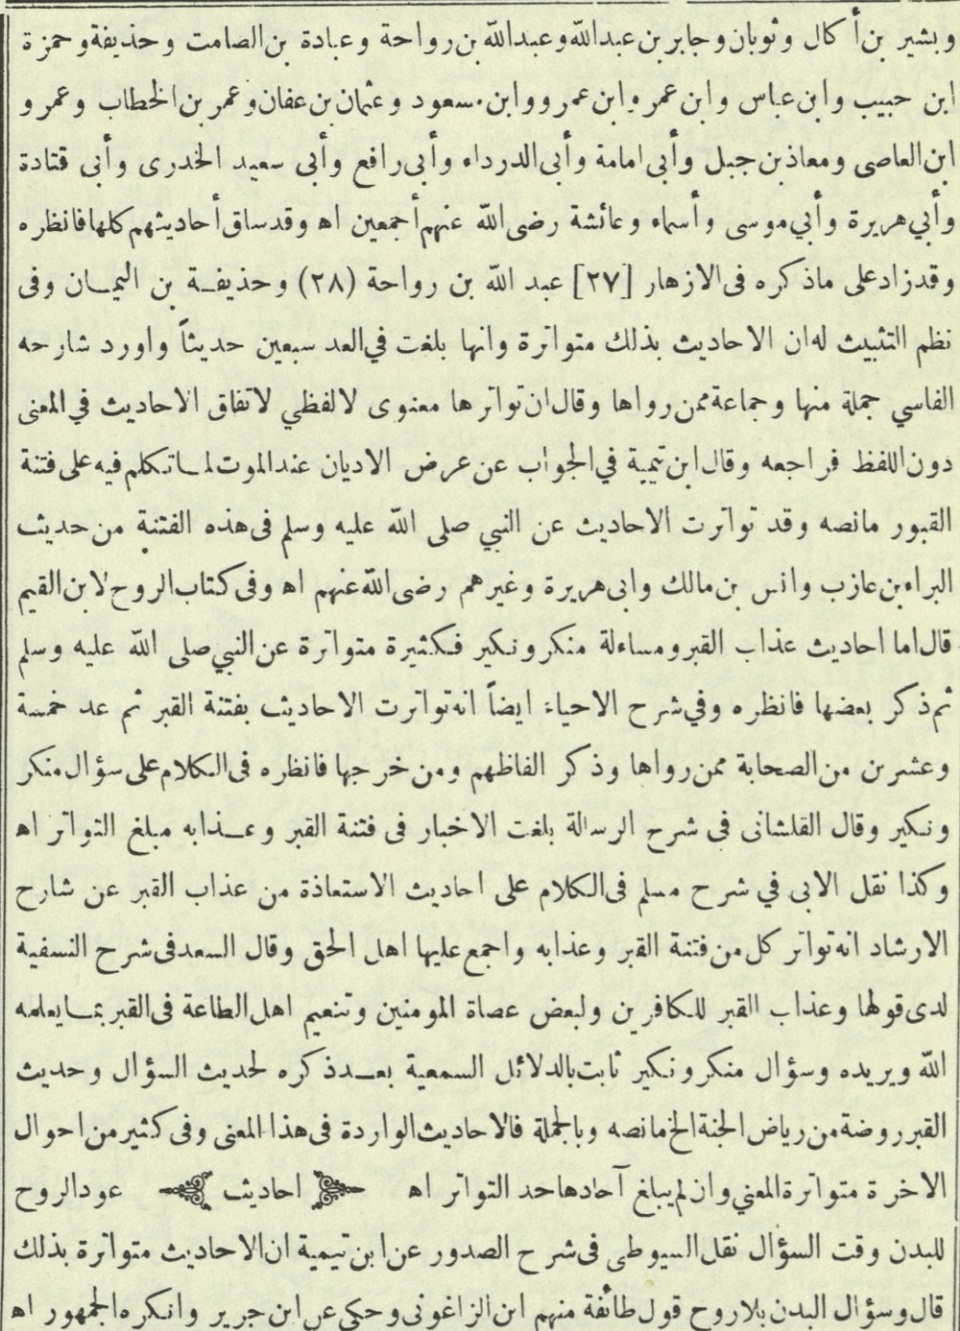 وبشير بن أكال وثوبان وجابر بن عبدالله وعبدالله بن رواحة وعبادة بن الصامت وحذيفة وحمزة
ابن حبيب وابن عباس وابن عمر وابن عمرو وابن مسعود وعثمان بن عفان وعمر بن الخطاب وعمرو
ابن العاصى ومعاذ بن جبل وأبى امامة وأبى الدرداء وأبى رافع وأبى سعيد الخدرى وأبى قتادة
وأبي هريرة وأبي موسى وأسماء وعائشة رضى الله عنهم أجمعين اه وقد ساق أحاديثهم كلها فانظره
وقد زاد على ماذكره فى الازهار [٢٧] عبد الله بن رواحة (٢٨) وحذيفة بن اليمان وفى
نظم التثبيت له ان الاحاديث بذلك متواترة وانها بلغت في العد سبعين حديثاً واورد شارحه
الفاسي جملة منها وجماعة ممن رواها وقال ان تواترها معنوى لا لفظي لاتفاق الاحاديث في المعنى
دون اللفظ فراجعه وقال ابن تيمية في الجواب عن عرض الاديان عند الموت لما تكلم فيه على فتنة
القبور مانصه وقد تواترت الاحاديث عن النبي صلى الله عليه وسلم فى هذه الفتنة من حديث
البراء بن عازب وانس بن مالك وابى هريرة وغيرهم رضى الله عنهم اه وفى كتاب الروح لابن القيم
قال اما احاديث عذاب القبر ومساءلة منكر ونكير فكثيرة متواترة عن النبي صلى الله عليه وسلم
ثم ذكر بعضها فانظره وفي شرح الاحياء ايضاً انه تواترت الاحاديث بفتنة القبر ثم عد خمسة
وعشرين من الصحابة ممن رواها وذكر الفاظهم ومن خرجها فانظره فى الكلام على سؤال منكر
ونكير وقال القلشانى فى شرح الرسالة بلغت الاخبار فى فتنة القبر وعذابه مبلغ التواتر اه
وكذا نقل الابى في شرح مسلم فى الكلام على احاديث الاستعاذة من عذاب القبر عن شارح
الارشاد انه تواتر كل من فتنة القبر وعذابه واجمع عليها اهل الحق وقال السعد فى شرح النسفية
لدى قولها وعذاب القبر للكافرين ولبعض عصاة المومنين وتنعيم اهل الطاعة فى القبر بما يعلمه
الله ويريده وسؤال منكر ونكير ثابت بالدلائل السمعية بعد ذكره لحديث السؤال وحديث
القبر روضة من رياض الجنة الخ مانصه وبالجملة فالاحاديث الواردة فى هذا المعنى وفى كثير من احوال
الاخرة متواترة المعني وان لم يبلغ آحادها حد التواتر اه احاديث عود الروح
للبدن وقت السؤال نقل السيوطى فى شرح الصدور عن ابن تيمية ان الاحاديث متواترة بذلك
قال وسؤال البدن بلا روح قول طائفة منهم ابن الزاغونى وحكى عن ابن جرير وانكره الجمهور اه